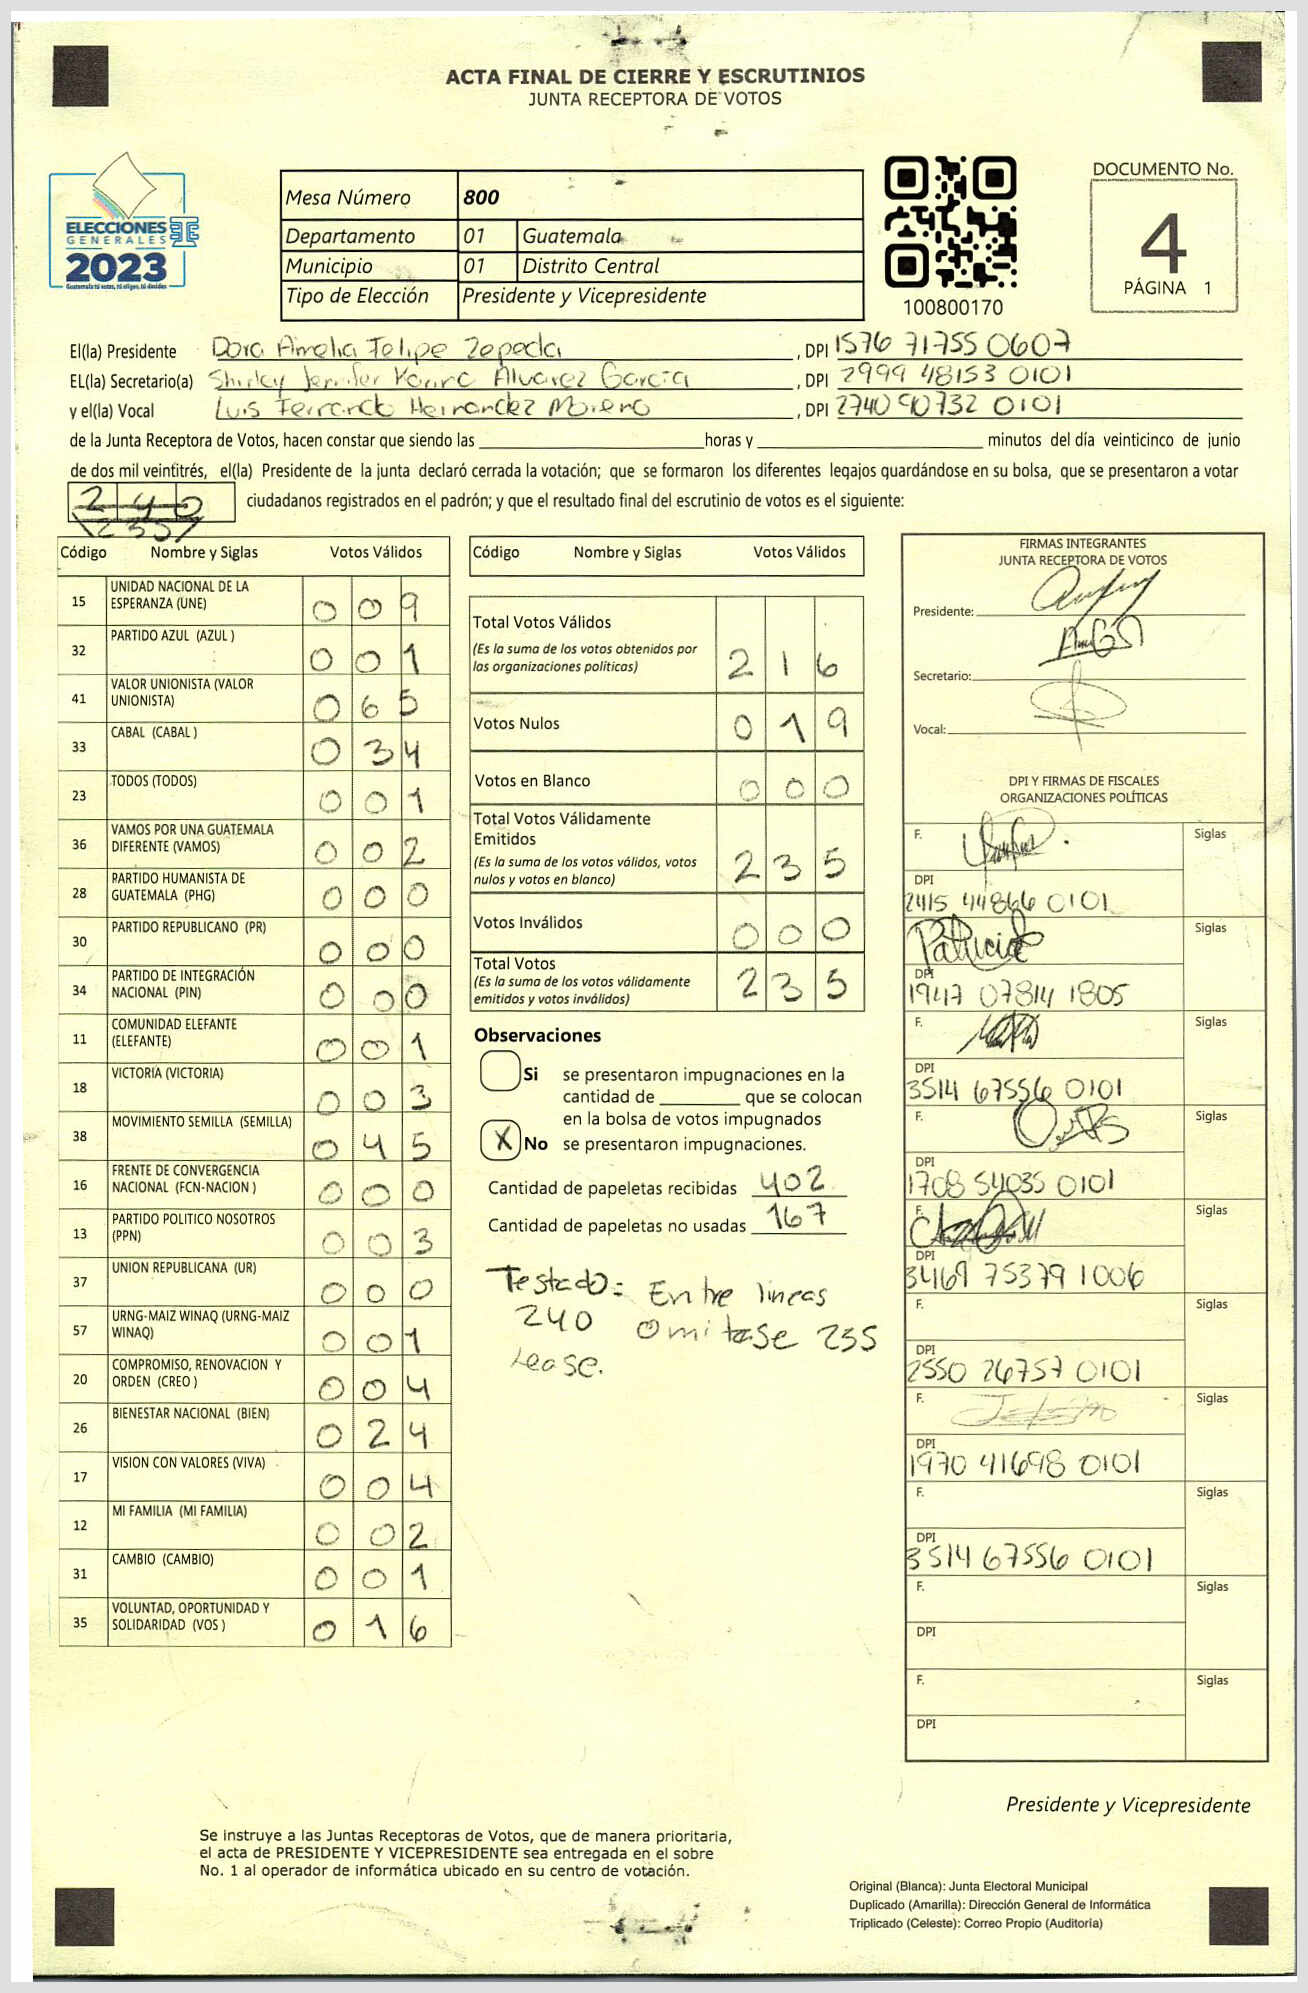 ACTA FINAL DE CIERRE Y ESCRUTINIOS
JUNTA RECEPTORA DE VOTOS
ELECCIONES
GENERALES
2023
Guatemala tú votas, tú eliges, tú decides
Mesa Número 800
Departamento 01 Guatemala
Municipio 01 Distrito Central
Tipo de Elección Presidente y Vicepresidente
100800170
DOCUMENTO No.
4
PÁGINA 1
El(la) Presidente Dora Amelia Felipe Zepeda, DPI 1576 71755 0607
EL(la) Secretario(a) Shirley Jennifer Karina Alvarez García, DPI 2999 48153 0101
y el(la) Vocal Luis Fernando Hernandez Moreno, DPI 2740 90732 0101
de la Junta Receptora de Votos, hacen constar que siendo las horas y minutos del día veinticinco de junio
de dos mil veintitrés, el(la) Presidente de la junta declaró cerrada la votación; que se formaron los diferentes legajos guardándose en su bolsa, que se presentaron a votar
240 ciudadanos registrados en el padrón; y que el resultado final del escrutinio de votos es el siguiente:
235
Código Nombre y Siglas Votos Válidos
15 UNIDAD NACIONAL DE LA
ESPERANZA (UNE) 0 0 9
32 PARTIDO AZUL (AZUL ) 0 0 1
41 VALOR UNIONISTA (VALOR
UNIONISTA) 0 6 5
33 CABAL (CABAL ) 0 3 4
23 TODOS (TODOS) 0 0 1
36 VAMOS POR UNA GUATEMALA
DIFERENTE (VAMOS) 0 0 2
28 PARTIDO HUMANISTA DE
GUATEMALA (PHG) 0 0 0
30 PARTIDO REPUBLICANO (PR) 0 0 0
34 PARTIDO DE INTEGRACIÓN
NACIONAL (PIN) 0 0 0
11 COMUNIDAD ELEFANTE
(ELEFANTE) 0 0 1
18 VICTORIA (VICTORIA) 0 0 3
38 MOVIMIENTO SEMILLA (SEMILLA) 0 4 5
16 FRENTE DE CONVERGENCIA
NACIONAL (FCN-NACION ) 0 0 0
13 PARTIDO POLITICO NOSOTROS
(PPN) 0 0 3
37 UNION REPUBLICANA (UR) 0 0 0
57 URNG-MAIZ WINAQ (URNG-MAIZ
WINAQ) 0 0 1
20 COMPROMISO, RENOVACION Y
ORDEN (CREO ) 0 0 4
26 BIENESTAR NACIONAL (BIEN) 0 2 4
17 VISION CON VALORES (VIVA) 0 0 4
12 MI FAMILIA (MI FAMILIA) 0 0 2
31 CAMBIO (CAMBIO) 0 0 1
35 VOLUNTAD, OPORTUNIDAD Y
SOLIDARIDAD (VOS ) 0 1 6
Código Nombre y Siglas Votos Válidos
Total Votos Válidos
(Es la suma de los votos obtenidos por
las organizaciones políticas) 2 1 6
Votos Nulos 0 1 9
Votos en Blanco 0 0 0
Total Votos Válidamente
Emitidos
(Es la suma de los votos válidos, votos
nulos y votos en blanco) 2 3 5
Votos Inválidos 0 0 0
Total Votos
(Es la suma de los votos válidamente
emitidos y votos inválidos) 2 3 5
Observaciones
Si se presentaron impugnaciones en la
cantidad de que se colocan
en la bolsa de votos impugnados
X No se presentaron impugnaciones.
Cantidad de papeletas recibidas 402
Cantidad de papeletas no usadas 167
Testado: Entre lineas
240 Omitase 235
Lease.
FIRMAS INTEGRANTES
JUNTA RECEPTORA DE VOTOS
Presidente:
Secretario:
Vocal:
DPI Y FIRMAS DE FISCALES
ORGANIZACIONES POLÍTICAS
F. Siglas
DPI
2415 44866 0101
Patricia Siglas
DPI
1947 07814 1805
F. Siglas
DPI
3514 67556 0101
F. Siglas
DPI
1708 54035 0101
F. Siglas
DPI
3469 75379 1006
F. Siglas
DPI
2550 26757 0101
F. Siglas
DPI
1970 41698 0101
F. Siglas
DPI
3514 67556 0101
F. Siglas
DPI
F. Siglas
DPI
Presidente y Vicepresidente
Se instruye a las Juntas Receptoras de Votos, que de manera prioritaria,
el acta de PRESIDENTE Y VICEPRESIDENTE sea entregada en el sobre
No. 1 al operador de informática ubicado en su centro de votación.
Original (Blanca): Junta Electoral Municipal
Duplicado (Amarilla): Dirección General de Informática
Triplicado (Celeste): Correo Propio (Auditoría)